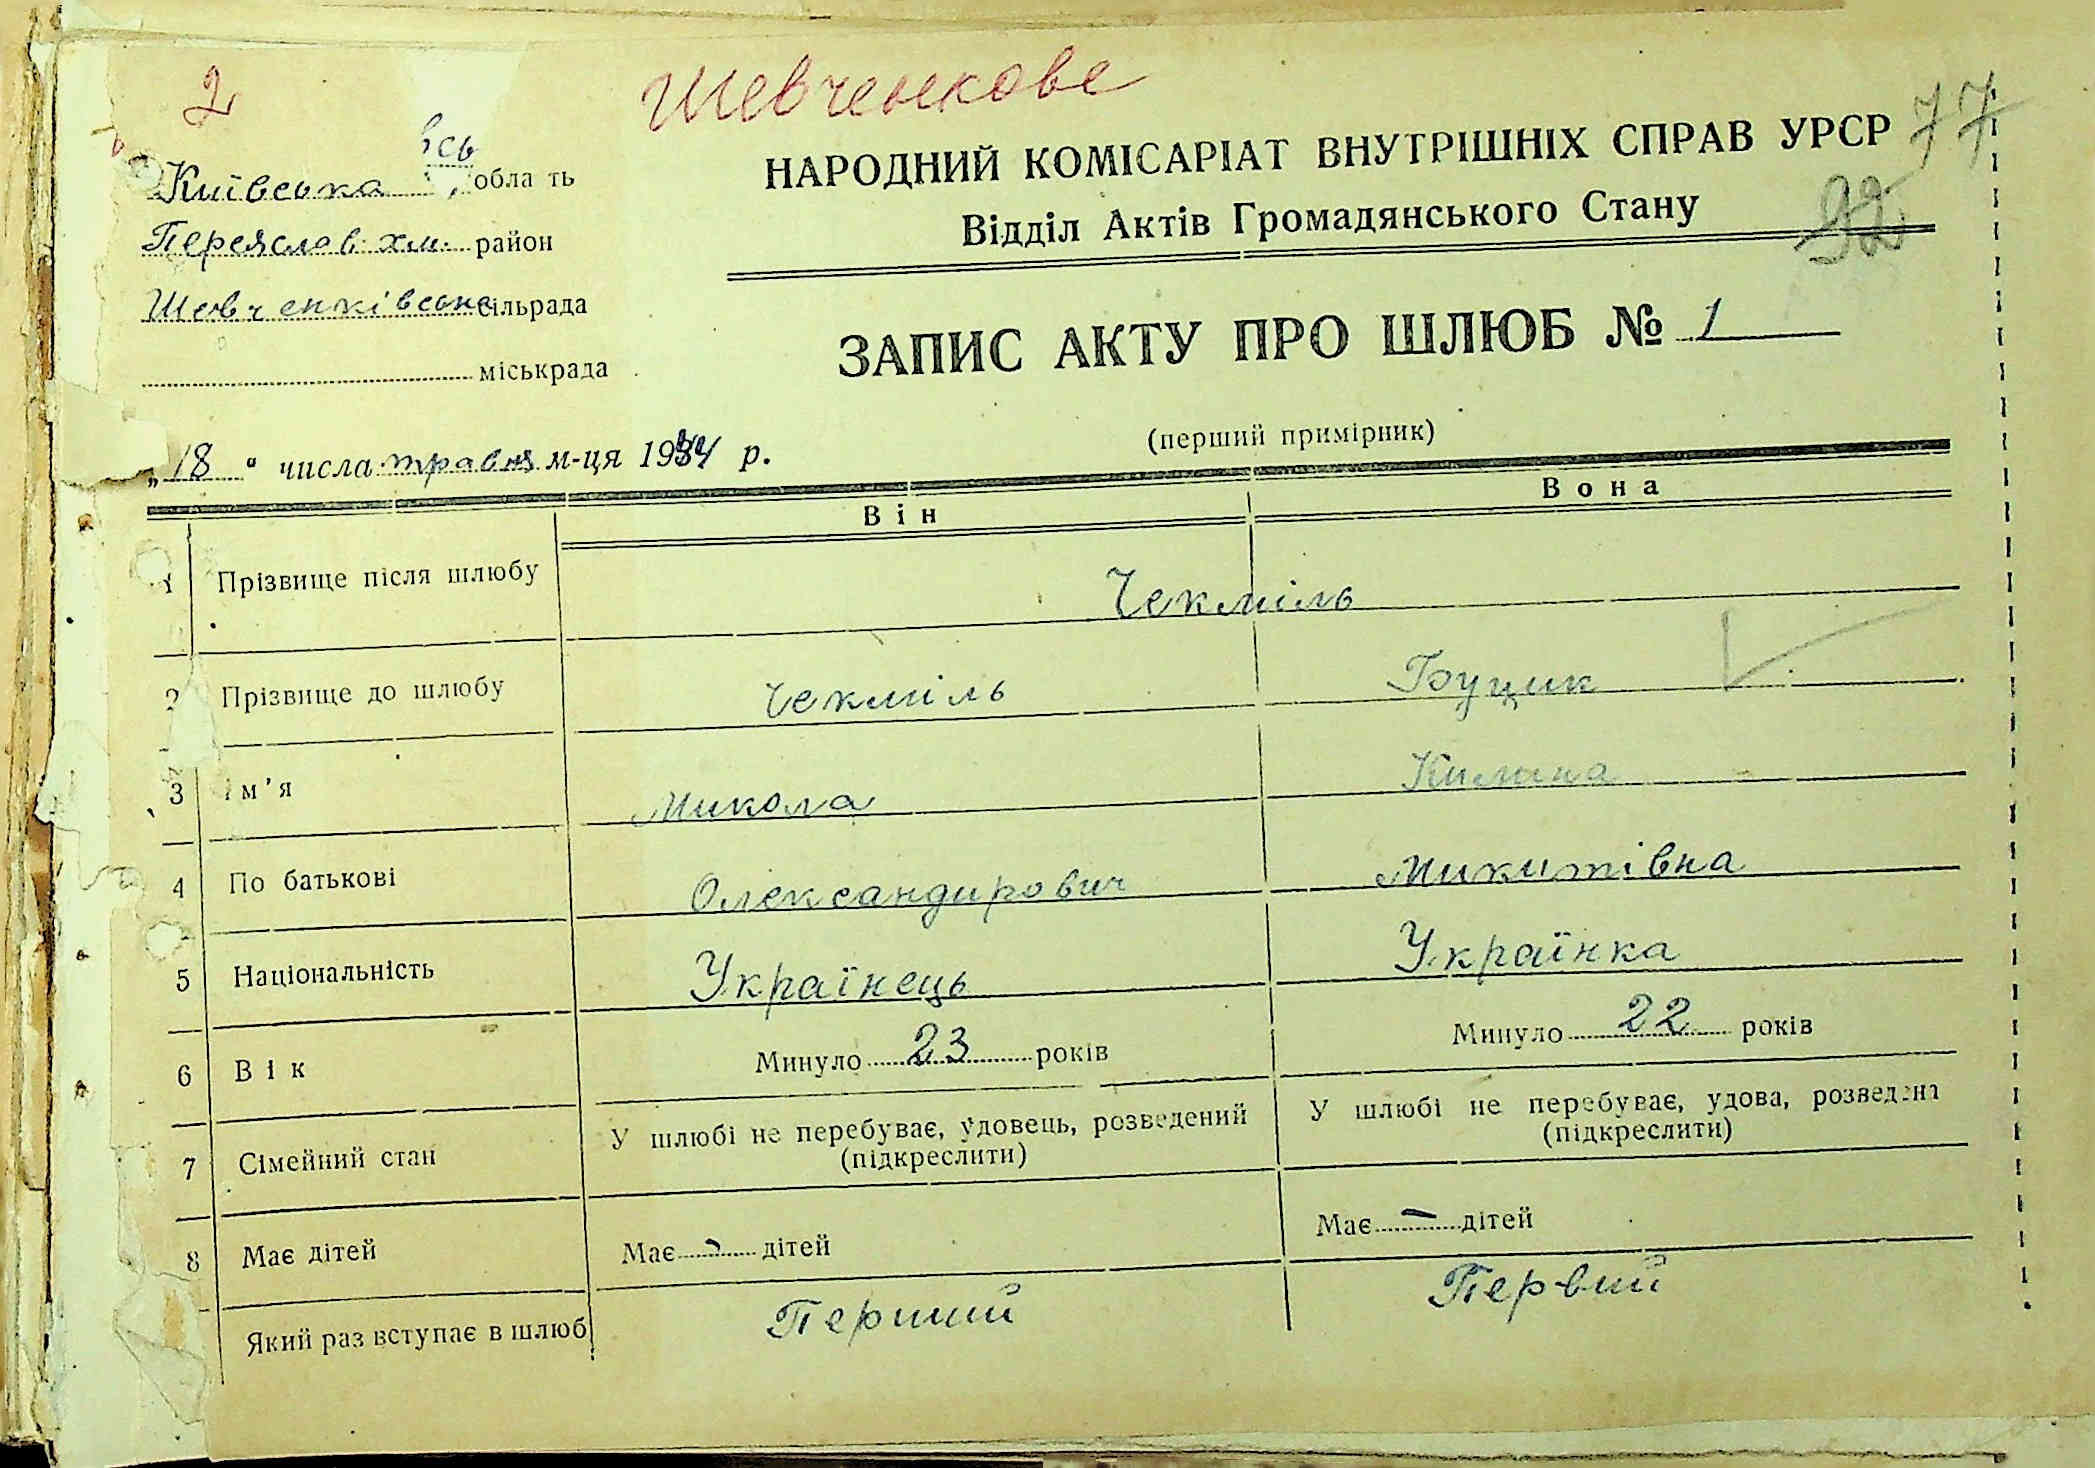 2
Шевченкове
77
92
ВСЬ
Київська обла ть
Переяслав хм. район
Шевченківська сільрада
міськрада
НАРОДНИЙ КОМІСАРІАТ ВНУТРІШНІХ СПРАВ УРСР
Відділ Актів Громадянського Стану
ЗАПИС АКТУ ПРО ШЛЮБ № 1
(перший примірник)
„18“ числа травня м-ця 1944 р.
Він Вона
1 Прізвище після шлюбу Чекміль
2 Прізвище до шлюбу Чекміль Буцик
3 Ім'я Микола Килина
4 По батькові Олександирович Микитівна
5 Національність Українець Українка
6 Вік Минуло 23 років Минуло 22 років
7 Сімейний стан У шлюбі не перебуває, удовець, розведений У шлюбі не перебуває, удова, розведена
(підкреслити) (підкреслити)
8 Має дітей Має - дітей Має - дітей
Який раз вступає в шлюб Перший Первий